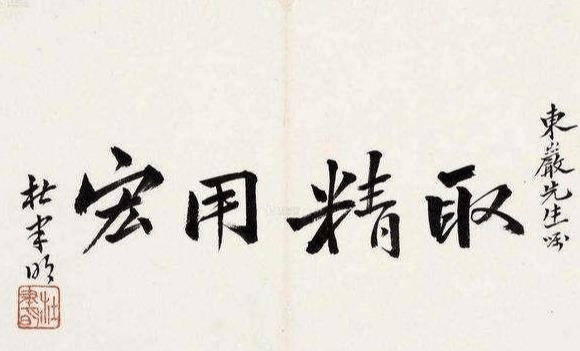 東巖先生囑
取精用宏
杜聿明
杜聿明